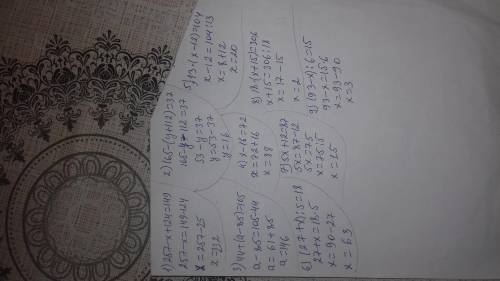 1) 257-x+124=149
257-x=149-124
x=257-25
x=232
2) 165-(y+12)=37
165-y-12=37
53-y=37
y=53-37
y=16
5) 13·(x-12)=104
x-12=104:13
x=8+12
x=20
3) 44+(a-85)=105
a-85=105-44
a=61+85
a=146
4) x-16=72
x=72+16
x=88
8) 18·(x+15)=306
x+15=306:18
x=17-15
x=2
6) (27+x):5=18
27+x=18·5
x=90-27
x=63
7) 5x+12=87
5x=87-12
5x=75
x=75:5
x=15
9) (93-x):6=15
93-x=15·6
x=93-90
x=3